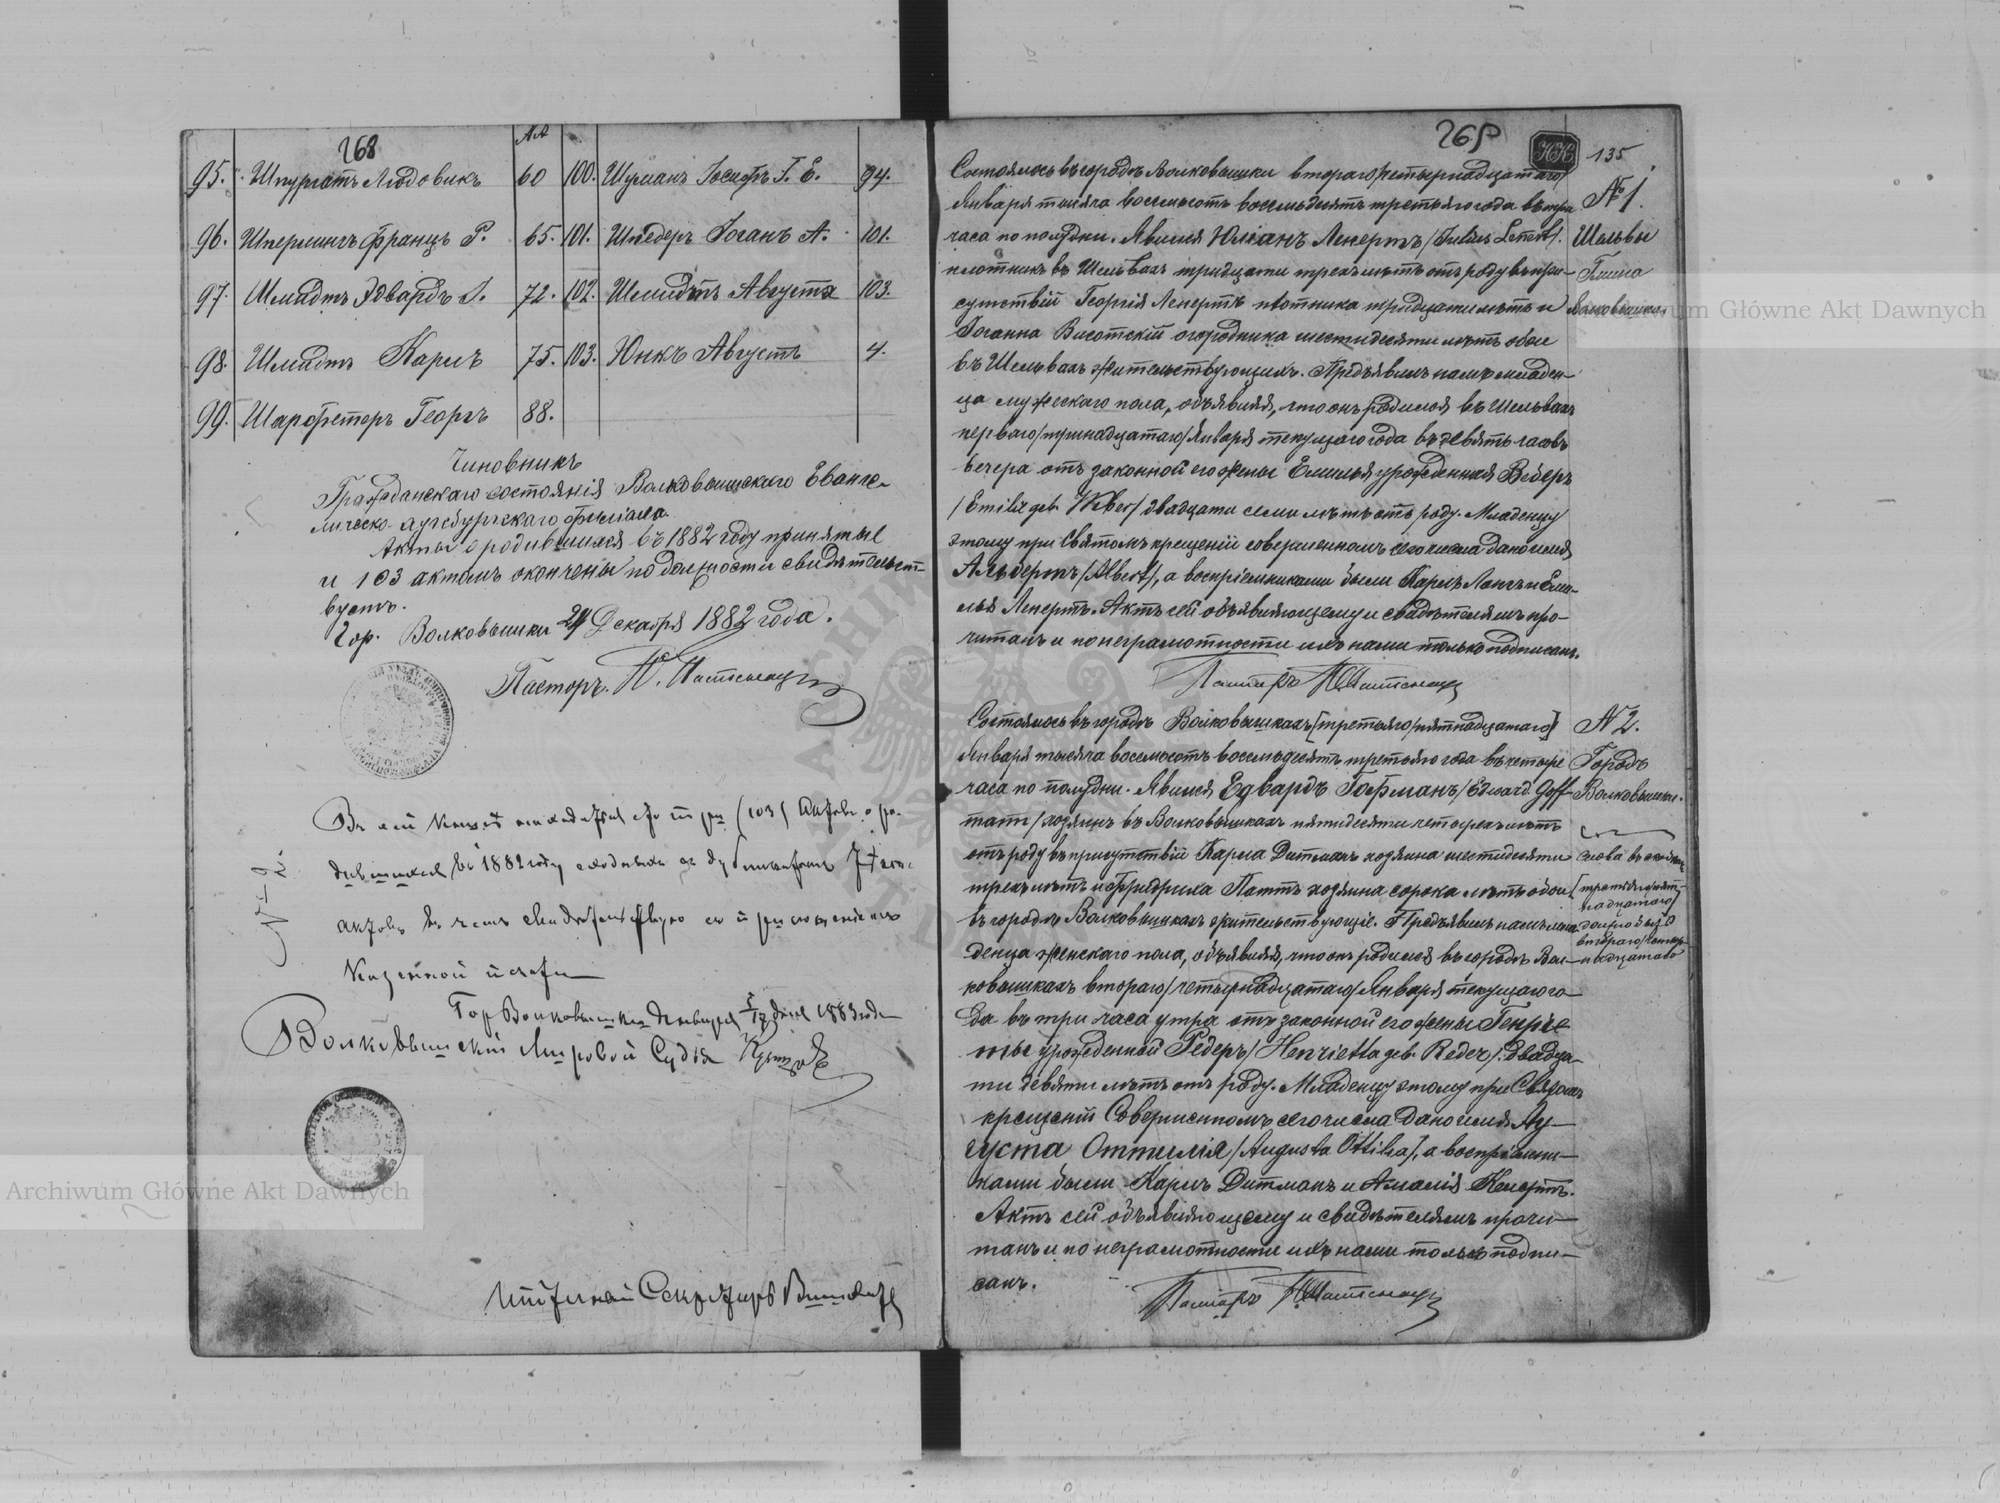 268
АА
95. Шпургатъ Людовикъ 60 100. Шуманъ Іосифъ Г. Е. 94.
96. Шперлингъ Францъ Р. 65. 101. Шпедеръ Іоганъ А. 101.
97. Шмидтъ Эдвардъ 72. 102. Шмидтъ Августа 103.
98. Шмидтъ Карлъ 75. 103. Юнкъ Августъ 4.
99. Шарфетеръ Георгъ 88.
Чиновникъ
Гражданскаго состоянія Волковышскаго Еванге-
лическо-аугсбургскаго филіала.
Акты о родившихся въ 1882 году принятые
и 103 актомъ окончены по должности свидѣтельст-
вуетъ.
Гор. Волковышки Декабря 1882 года.
Пасторъ.
(103) Актовъ о ро-
дившихся въ 1882 году
актовъ въ чемъ
казенной печати
Гор Волковышки Января 5/17 дня 1883 года
Волковышскій Мировой Судья
Секретарь
269
НК 135
Состоялось въ городѣ Волковышки втораго/четырнадцатаго/
Января тысяча восемьсотъ восемьдесятъ третьяго года въ три
часа по полудни. Явился Юліанъ Ленертъ /Julius Lenert/.
плотникъ въ Шельвахъ тридцати трехъ лѣтъ отъ роду въ при-
сутствіи Георгія Ленертъ плотника тридцати лѣтъ и
Іоганна Висотскій огородника шестидесяти лѣтъ обои
въ Шельвахъ жительствующихъ. Предъявилъ намъ младен-
ца мужескаго пола, объявляя, что онъ родился въ Шельвахъ
перваго/тринадцатаго/Января текущаго года въ девять часовъ
вечера отъ законной его жены Емилья урожденная Веберъ
/Emilie geb. Weber/ двадцати семи лѣтъ отъ роду. Младенцу
этому при Святомъ крещеніи совершенномъ сего числа дано имя
Альбертъ /Albert/, а воспріемниками были Карлъ Лангъ и Еми-
лья Ленертъ. Актъ сей объявляющему и свидѣтелямъ про-
читанъ и по неграмотности ихъ нами только подписанъ.
Пасторъ
№ 1.
Шельвы
Гмина
Волковышки
Состоялось въ городѣ Волковышкахъ [третьяго/пятнадцатаго]
Января тысяча восемьсотъ восемьдесятъ третьяго года въ четыре
часа по полудни. Явился Едвардъ Гофманъ /Edward Goff-
mann/ хозяинъ въ Волковышкахъ пятидесяти четырехъ лѣтъ
отъ роду въ присутствіи Карла Дитманъ хозяина шестидесяти
трехъ лѣтъ и Фридриха Паттъ хозяина сорока лѣтъ обои
въ городѣ Волковышкахъ жительствующіе. Предъявилъ намъ мла-
денца женскаго пола, объявляя, что онъ родился въ городѣ Вол-
ковышкахъ втораго/четырнадцатаго/Января текущаго го-
да въ три часа утра отъ законной его жены Генріе
тты урожденной Редеръ /Henrietta geb. Reder/. двадца-
ти девяти лѣтъ отъ роду. Младенцу этому при Святомъ
крещеніи Совершенномъ сего числа дано имя Ау-
густа Оттилія /Augusta Ottilia/, а воспріемни-
ками были Карлъ Дитманъ и Амалія Кенертъ.
Актъ сей объявляющему и свидѣтелямъ прочи-
танъ и по неграмотности ихъ нами только подпи-
санъ.
Пасторъ
№ 2.
Городъ
Волковышки.
слова въ скобкахъ
[третьяго/пят-
надцатаго]
должно быть
втораго/четыр-
надцатаго
Archiwum Główne Akt Dawnych
Archiwum Główne Akt Dawnych